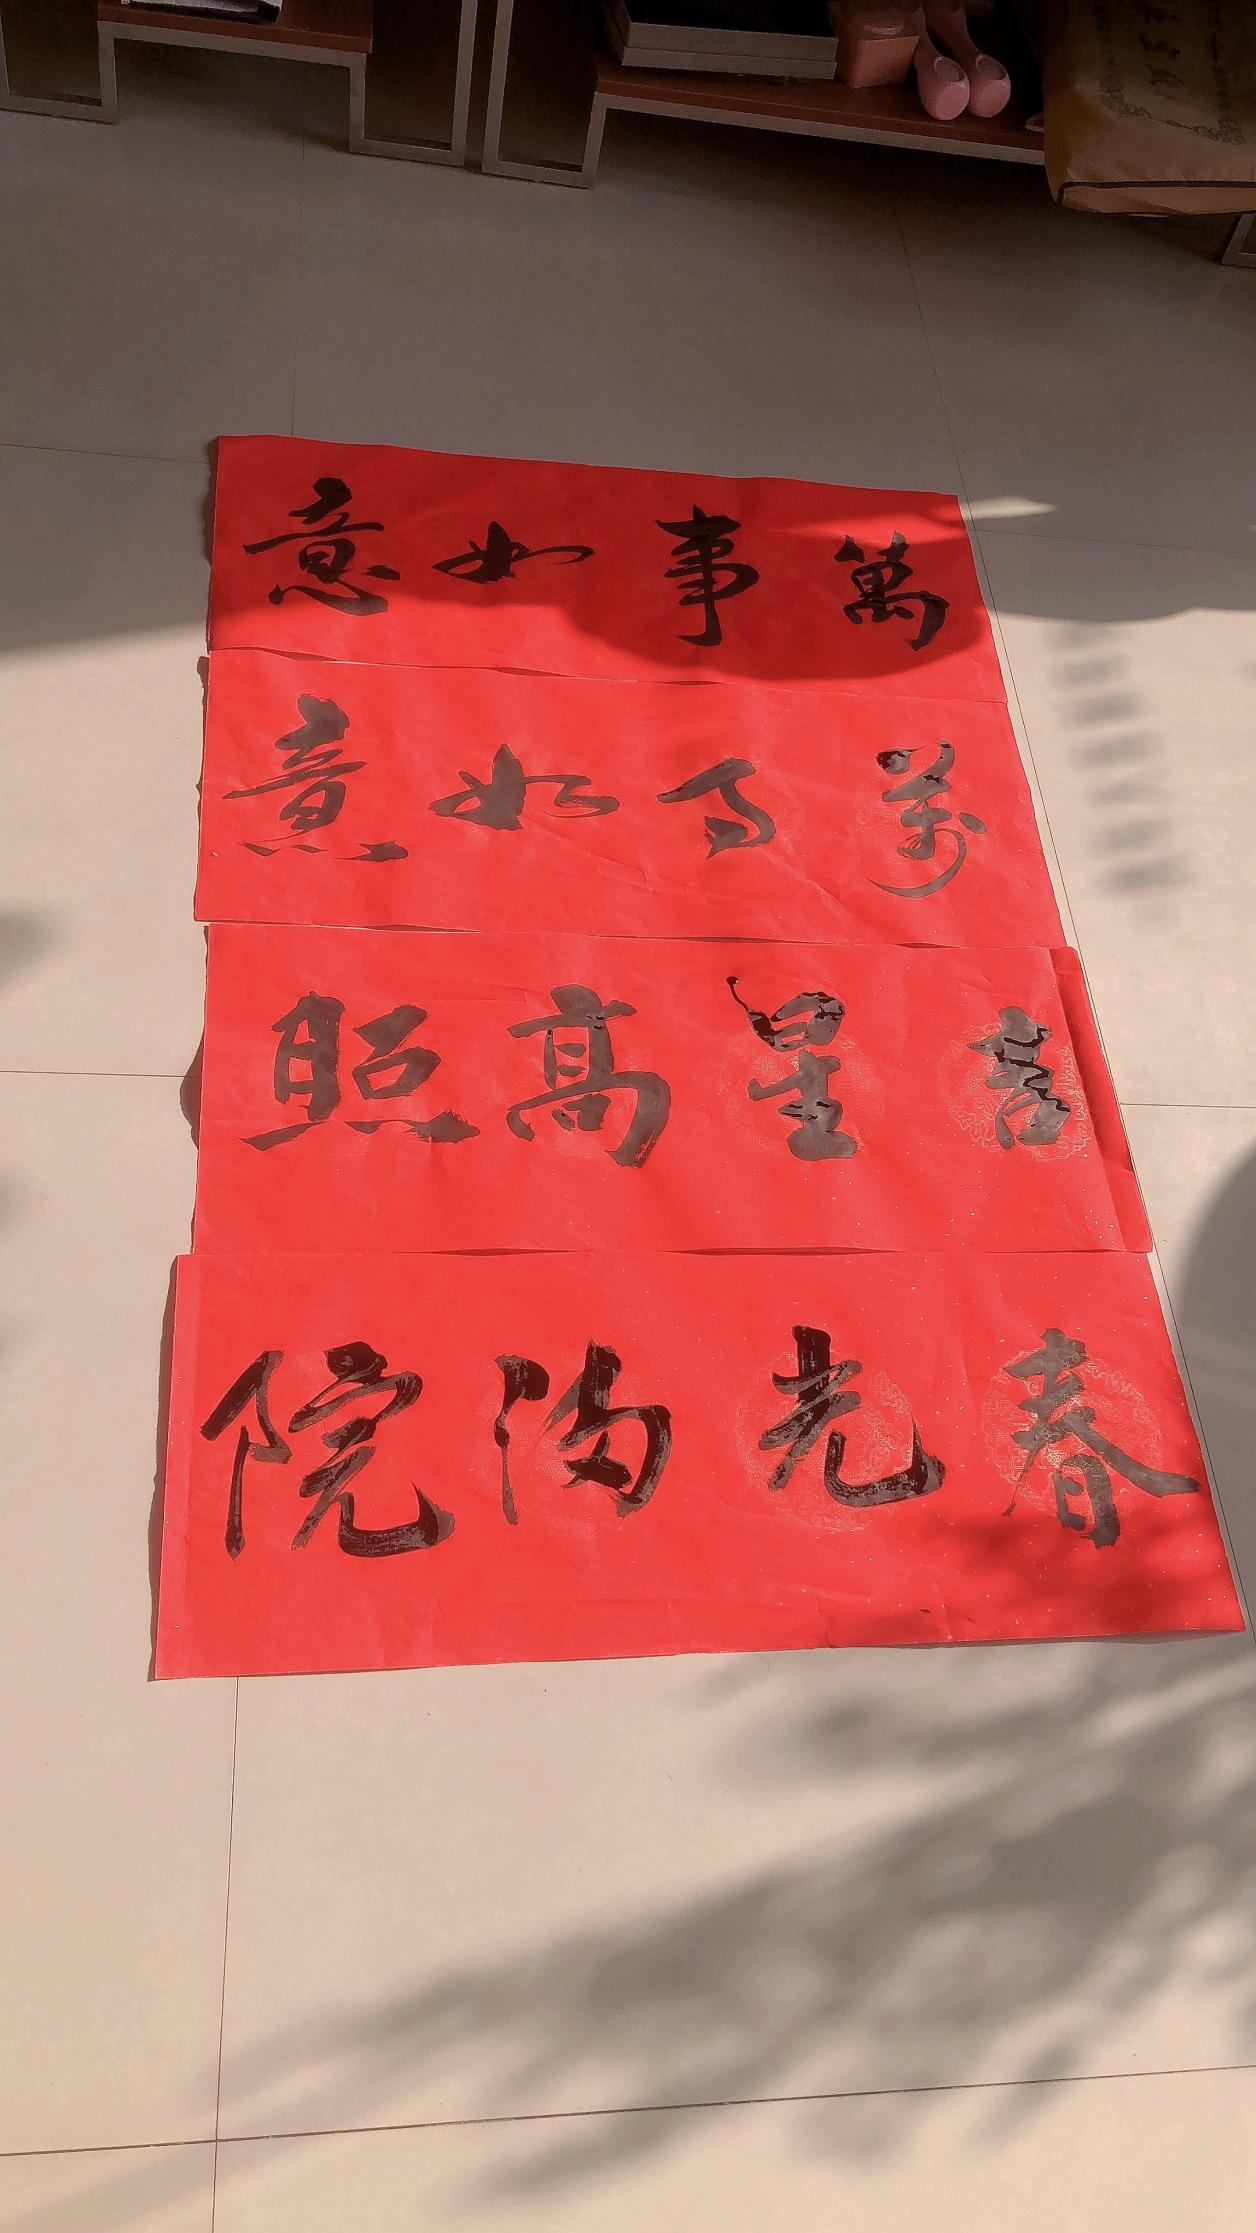 萬事如意
萬事如意
吉星高照
春光滿院